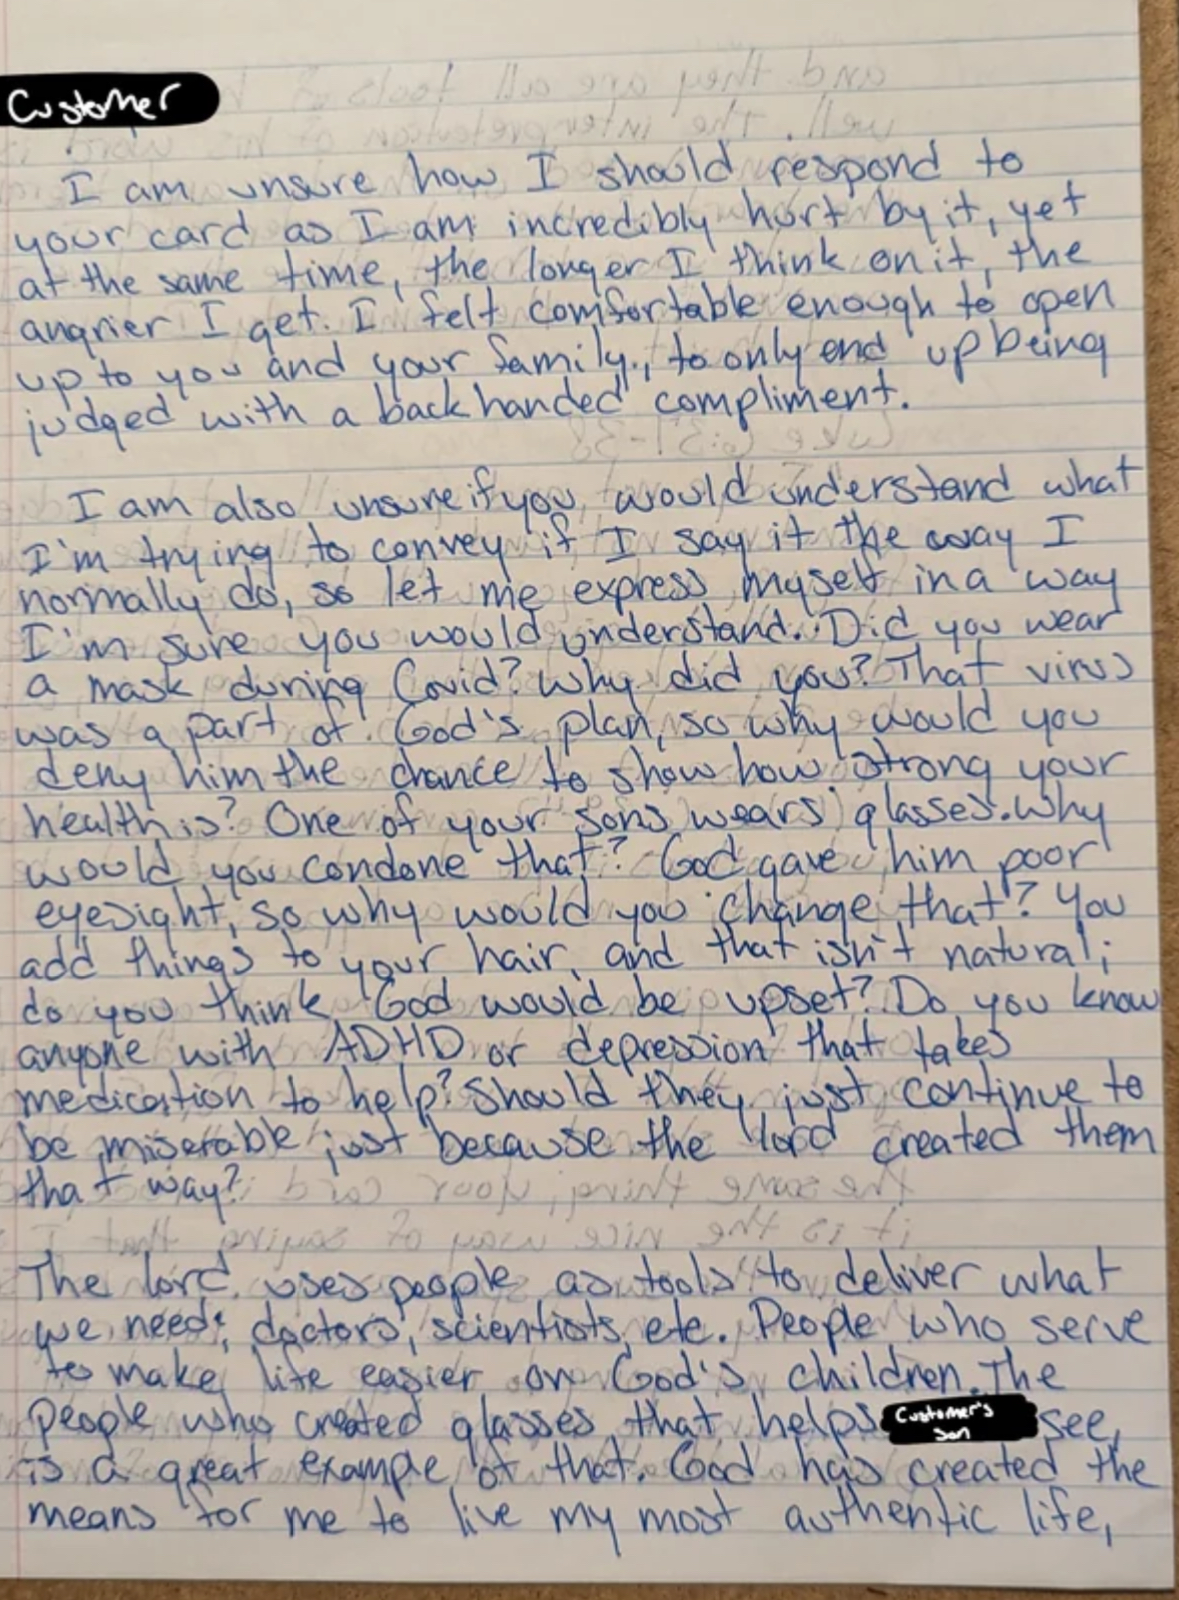 Customer
I am unsure how I should respond to
your card as I am incredibly hurt by it, yet
at the same time, the longer I think on it, the
angrier I get. I felt comfortable enough to open
up to you and your family, to only end up being
judged with a backhanded compliment.
I am also unsure if you would understand what
I'm trying to convey if I say it the way I
normally do, so let me express myself in a way
I'm sure you would understand. Did you wear
a mask during Covid? Why did you? That virus
was a part of God's plan, so why would you
deny him the chance to show how strong your
health is? One of your sons wears glasses. Why
would you condone that? God gave him poor
eyesight, so why would you change that? You
add things to your hair, and that isn't natural;
do you think God would be upset? Do you know
anyone with ADHD or depression that takes
medication to help? Should they just continue to
be miserable just because the lord created them
that way?
The lord uses people as tools to deliver what
we need; doctors, scientists, etc. People who serve
to make life easier on God's children. The
people who created glasses, that helps Customer's son see,
is a great example of that. God has created the
means for me to live my most authentic life,